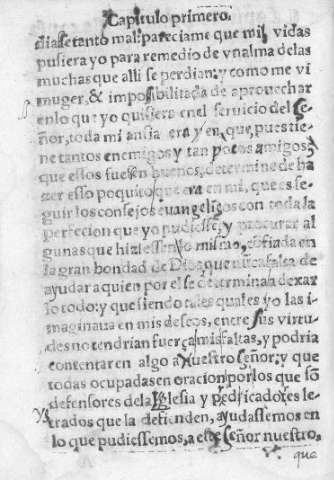 Capitulo primero.
diasse tanto mal: pareciame que mil vidas
pusiera yo para remedio de vn alma de las
muchas que alli se perdian: y como me vi
muger, & impossibilitada de aprouechar
en lo que yo quisiera en el seruicio del Se-
ñor, toda mi ansia era y en que, pues tie-
ne tantos enemigos y tan pocos amigos,
que ellos fuessen buenos, determine de ha
zer esso poquito que era en mi, que es se-
guir los consejos euangelicos con toda la
perfecion que yo pudiesse, y procurar al
gunas que hiziessen lo mismo, cõfiada en
la gran bondad de Dios, que nũca falta de
ayudar a quien por el se determina a dexar
lo todo: y que siendo tales quales yo las i-
maginaua en mis deseos, entre sus virtu-
des no tendrian fuerça mis faltas, y podria
contentar en algo a Nuestro señor: y que
todas ocupadas en oracion por los que sõ
defensores de la Iglesia y predicadores le-
trados que la defienden, ayudassemos en
lo que pudiessemos, a este Señor nuestro,
que